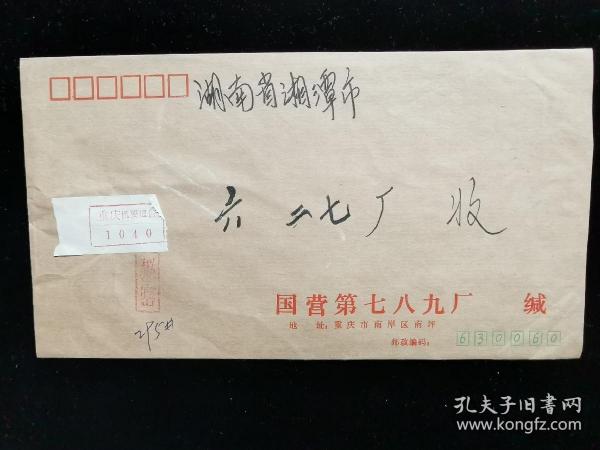 湖南省湘潭市
六二七厂 收
重庆机要
1040
国营第七八九厂 缄
地 址:重庆市南岸区南坪
邮政编码:630060
孔夫子旧书网
www.kongfz.com